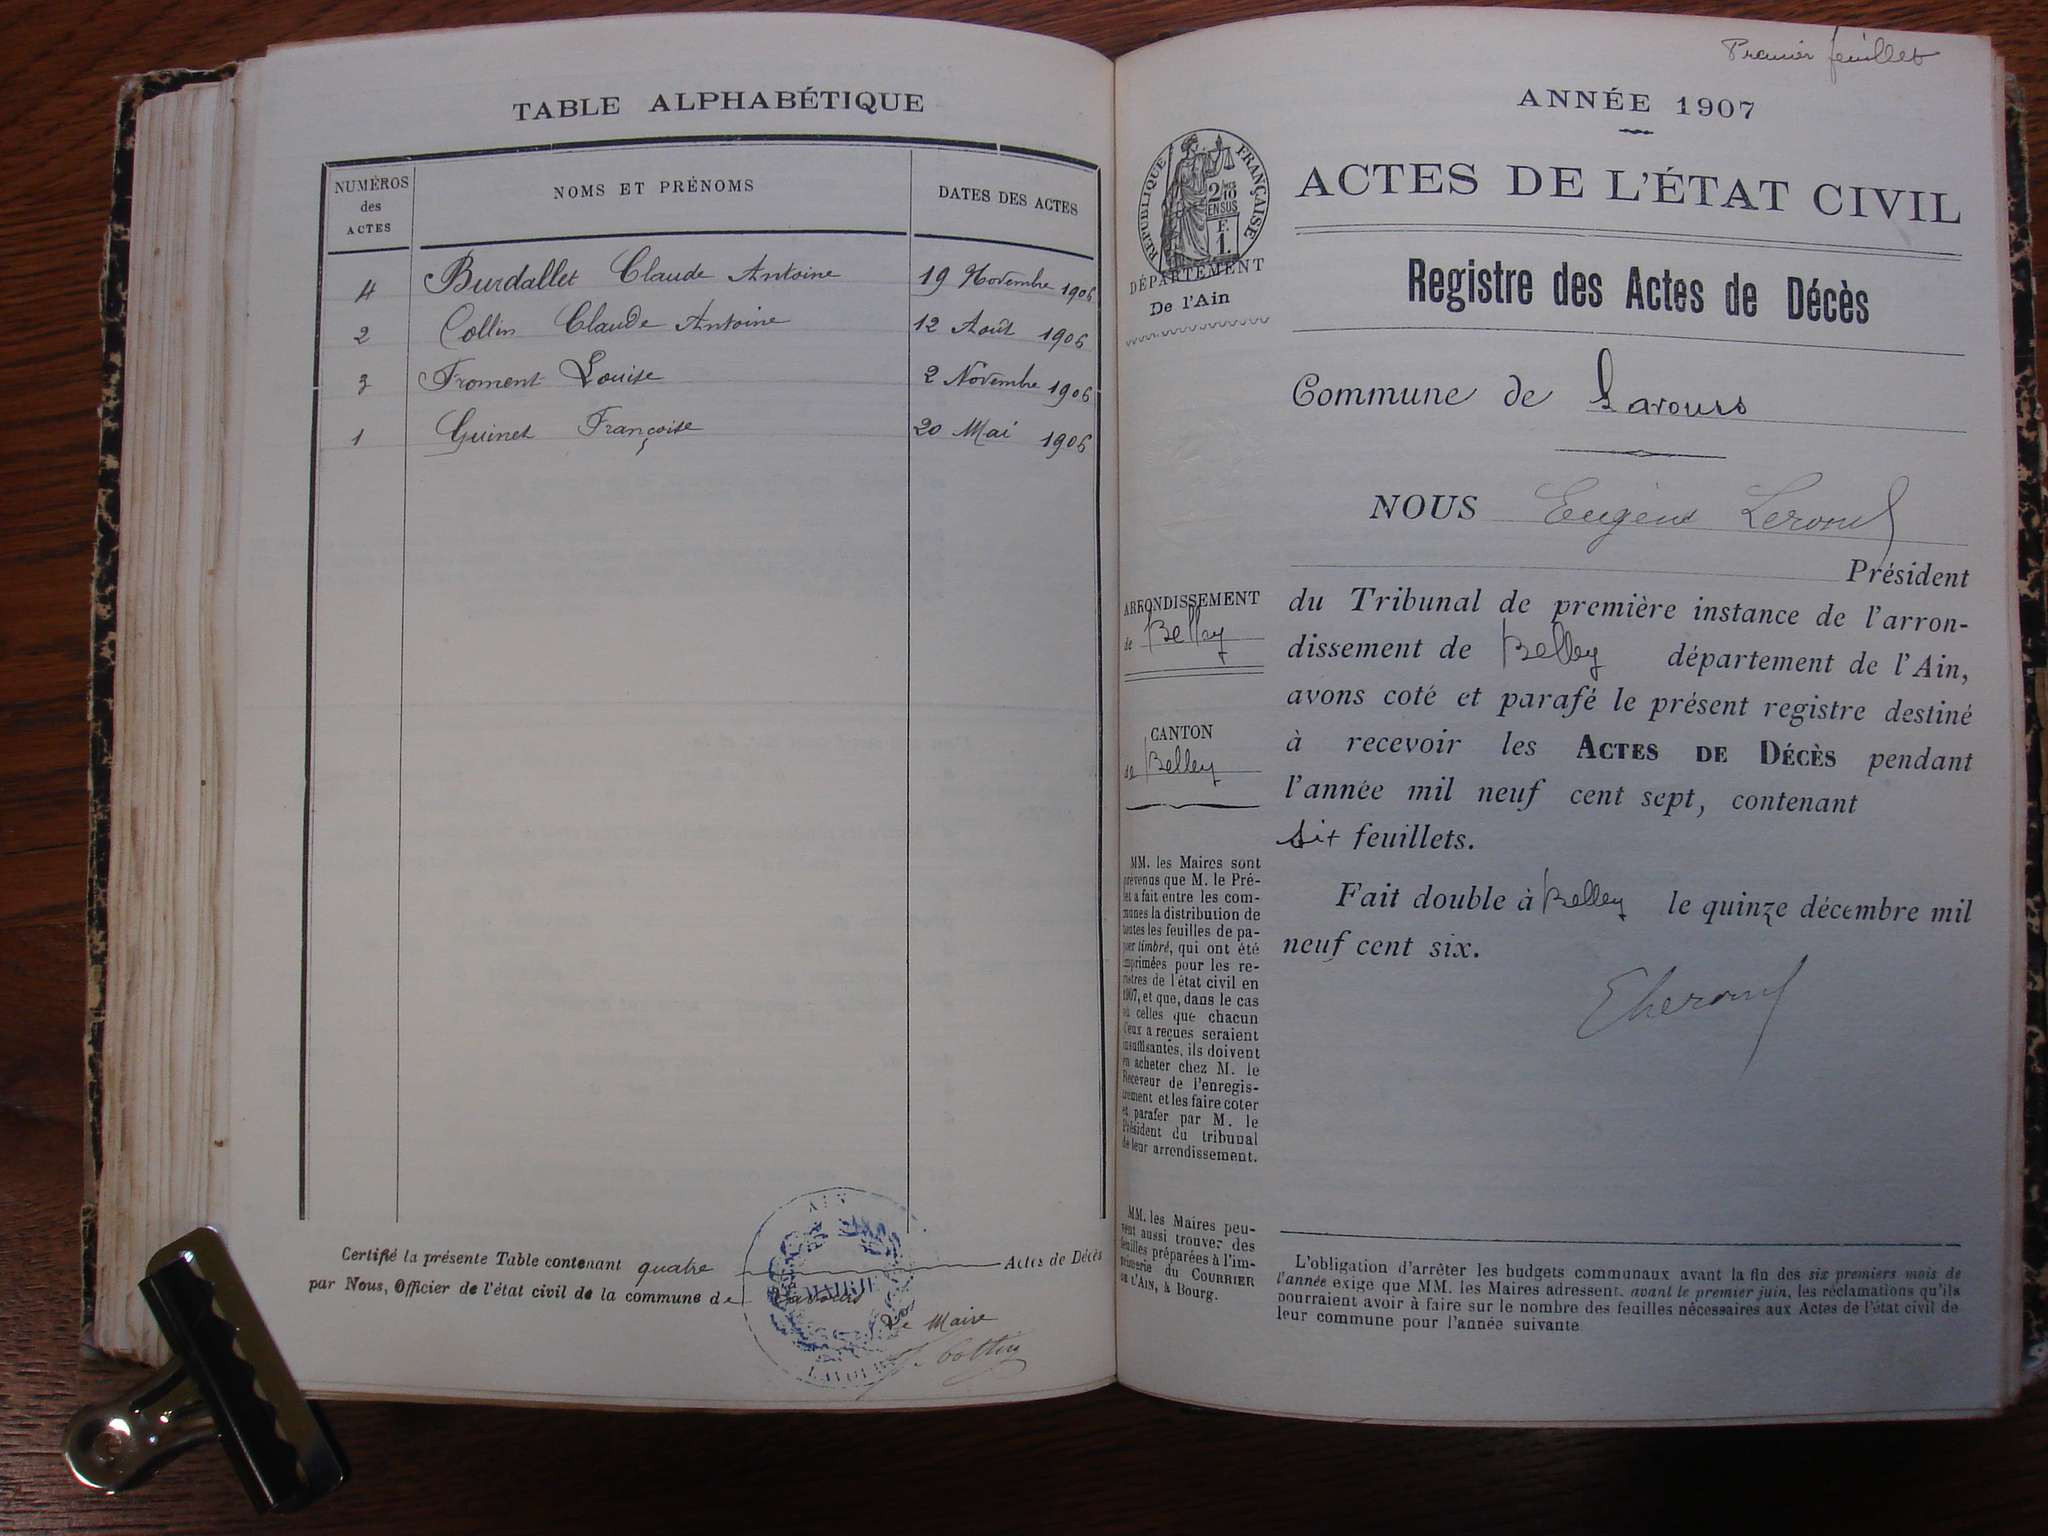 TABLE ALPHABÉTIQUE
NUMÉROS des ACTES
NOMS ET PRÉNOMS
DATES DES ACTES
4 Burdallet Claude Antoine 19 Novembre 1906
2 Collin Claude Antoine 12 Août 1906
3 Froment Louise 2 Novembre 1906
1 Guinet Françoise 20 Mai 1906
Certifié la présente Table contenant quatre Actes de Décès
par Nous, Officier de l'état civil de la commune de Lavours
Le Maire
AIN
MAIRIE
LAVOURS
Premier feuillet
ANNÉE 1907
ACTES DE L'ÉTAT CIVIL
Registre des Actes de Décès
Commune de Lavours
NOUS Eugène
Président
du Tribunal de première instance de l'arron-
dissement de Belley département de l'Ain,
avons coté et parafé le présent registre destiné
à recevoir les ACTES DE DÉCÈS pendant
l'année mil neuf cent sept, contenant
six feuillets.
Fait double à Belley le quinze décembre mil
neuf cent six.
RÉPUBLIQUE FRANÇAISE
2/10
EN SUS
F.
1.
DÉPARTEMENT
De l'Ain
ARRONDISSEMENT
de Belley
CANTON
de Belley
MM. les Maires sont
prévenus que M. le Pré-
fet a fait entre les com-
munes la distribution de
toutes les feuilles de pa-
pier timbré, qui ont été
imprimées pour les re-
gistres de l'état civil en
1907, et que, dans le cas
où celles que chacun
d'eux a reçues seraient
insuffisantes, ils doivent
en acheter chez M. le
Receveur de l'enregis-
trement et les faire coter
et parafer par M. le
Président du tribunal
de leur arrondissement.
MM. les Maires peu-
vent aussi trouver des
feuilles préparées à l'im-
primerie du COURRIER
DE L'AIN, à Bourg.
L'obligation d'arrêter les budgets communaux avant la fin des six premiers mois de
l'année exige que MM. les Maires adressent, avant le premier juin, les réclamations qu'ils
pourraient avoir à faire sur le nombre des feuilles nécessaires aux Actes de l'état civil de
leur commune pour l'année suivante